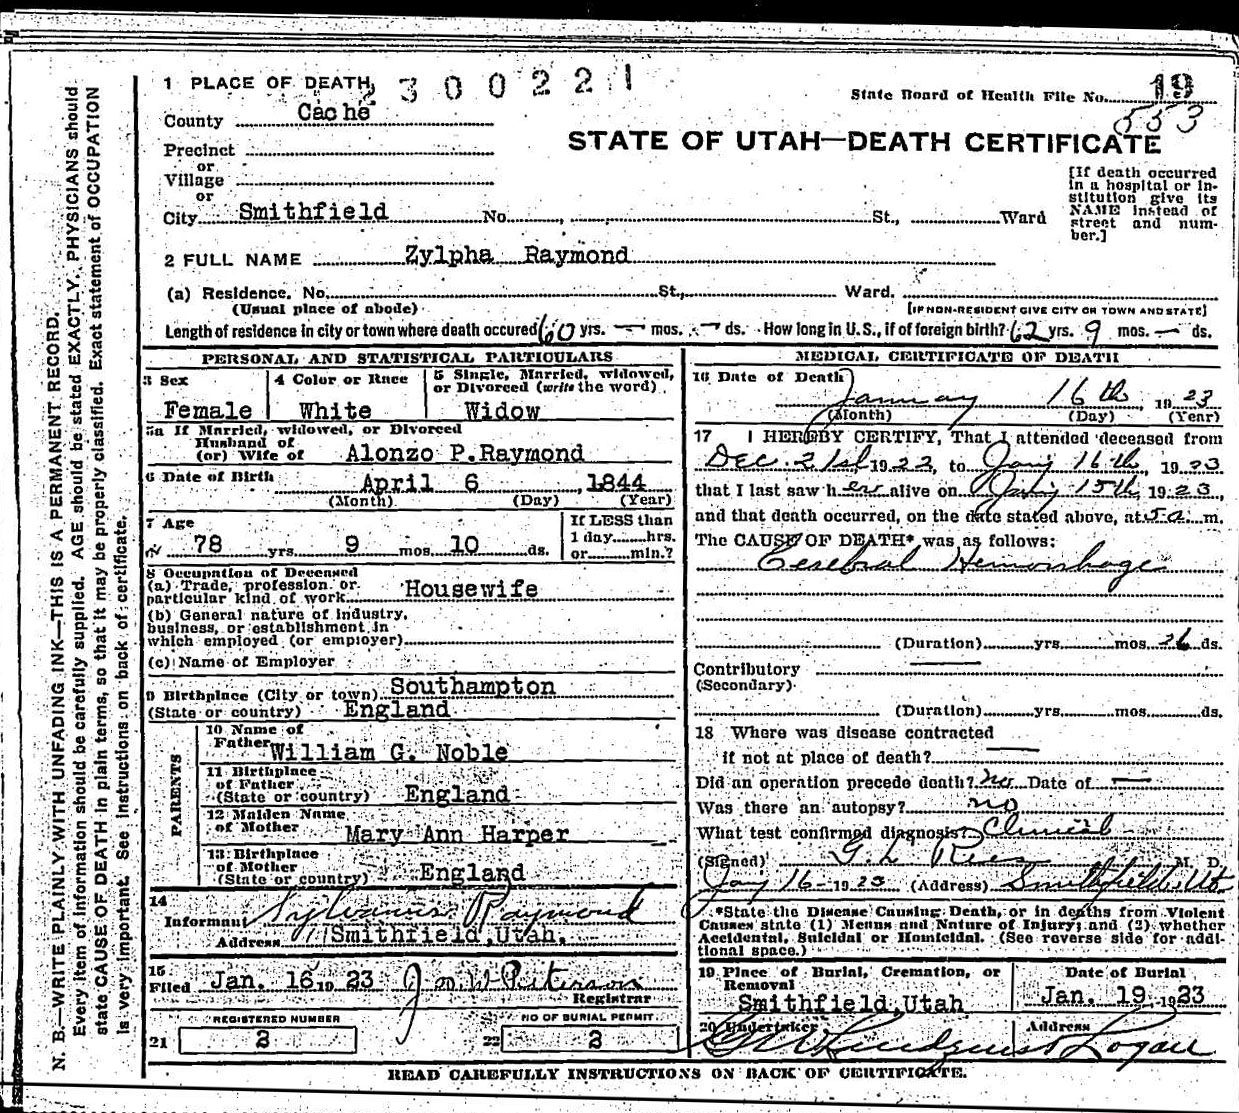 1 PLACE OF DEATH 2300221
State Board of Health File No. 19
553
County Cache
STATE OF UTAH—DEATH CERTIFICATE
Precinct
or
Village
or
City Smithfield No. St., Ward
[If death occurred
in a hospital or in-
stitution give its
NAME instead of
street and num-
ber.]
2 FULL NAME Zylpha Raymond
(a) Residence. No. St., Ward.
(Usual place of abode) [IF NON-RESIDENT GIVE CITY OR TOWN AND STATE]
Length of residence in city or town where death occured 60 yrs. — mos. — ds. How long in U.S., if of foreign birth? 62 yrs. 9 mos. — ds.
PERSONAL AND STATISTICAL PARTICULARS
3 Sex
Female
4 Color or Race
White
5 Single, Married, widowed,
or Divorced (write the word)
Widow
5a If Married, widowed, or Divorced
Husband of
(or) Wife of Alonzo P.Raymond
6 Date of Birth April 6, 1844
(Month) (Day) (Year)
7 Age
78 yrs. 9 mos. 10 ds.
If LESS than
1 day hrs.
or min.?
8 Occupation of Deceased
(a) Trade, profession or
particular kind of work Housewife
(b) General nature of industry,
business, or establishment in
which employed (or employer)
(c) Name of Employer
9 Birthplace (City or town) Southampton
(State or country) England
PARENTS
10 Name of
Father William G. Noble
11 Birthplace
of Father
(State or country) England
12 Maiden Name
of Mother Mary Ann Harper
13 Birthplace
of Mother
(State or country) England
14
Informant Sylvanus Raymond
Address Smithfield,Utah,
15
Filed Jan. 16, 19 23 J. m. W. Peterson
Registrar
REGISTERED NUMBER
21 2
NO OF BURIAL PERMIT
22 2
MEDICAL CERTIFICATE OF DEATH
16 Date of Death
January 16th, 1923
(Month) (Day) (Year)
17 I HEREBY CERTIFY, That I attended deceased from
Dec. 21st 1922, to Jany 16th, 1923
that I last saw her alive on Jany 15th, 1923,
and that death occurred, on the date stated above, at 5 a m.
The CAUSE OF DEATH* was as follows:
Cerebral Hemorhage
(Duration) yrs. mos. 26 ds.
Contributory
(Secondary)
(Duration) yrs. mos. ds.
18 Where was disease contracted
if not at place of death? —
Did an operation precede death? no Date of —
Was there an autopsy? no
What test confirmed diagnosis? Clinical
(Signed) G. L. Rees M. D.
Jany 16 - 1923 (Address) Smithfield, Ut.
*State the Disease Causing Death, or in deaths from Violent
Causes state (1) Means and Nature of Injury; and (2) whether
Accidental, Suicidal or Homicidal. (See reverse side for addi-
tional space.)
19 Place of Burial, Cremation, or
Removal
Smithfield,Utah
Date of Burial
Jan. 19, 1923
20 Undertaker Address
Lindquist Logan
READ CAREFULLY INSTRUCTIONS ON BACK OF CERTIFICATE.
N. B.—WRITE PLAINLY WITH UNFADING INK—THIS IS A PERMANENT RECORD.
Every item of information should be carefully supplied. AGE should be stated EXACTLY. PHYSICIANS should
state CAUSE OF DEATH in plain terms, so that it may be properly classified. Exact statement of OCCUPATION
is very important. See instructions on back of certificate.